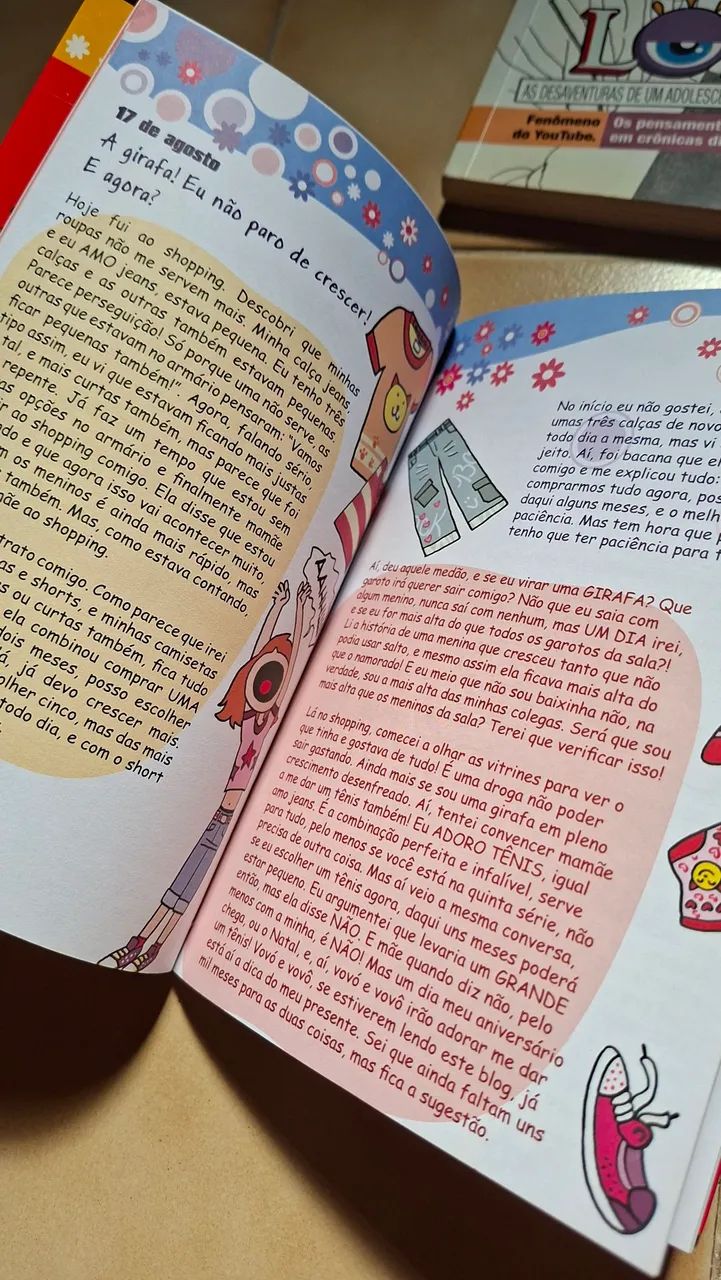 17 de agosto
A girafa! Eu não paro de crescer!
E agora?
Hoje fui ao shopping. Descobri que minhas
roupas não me servem mais. Minha calça jeans,
e eu AMO jeans, estava pequena. Eu tenho três
calças e as outras também estavam pequenas.
Parece perseguição! Só porque uma não serve, as
outras que estavam no armário pensaram: "Vamos
ficar pequenas também!". Agora, falando sério
tipo assim, eu vi que estavam ficando mais justas
tal, e mais curtas também, mas parece que foi
repente. Já faz um tempo que estou sem
as opções no armário e finalmente mamãe
ir ao shopping comigo. Ela disse que estou
ndo e que agora isso vai acontecer muito,
m os meninos é ainda mais rápido, mas
também. Mas, como estava contando,
mãe ao shopping.
trato comigo. Como parece que irei
as e shorts, e minhas camisetas
as ou curtas também, fica tudo
ela combinou comprar UMA
dois meses, posso escolher
lá, já devo crescer mais.
olher cinco, mas das mais
todo dia, e com o short
No início eu não gostei,
umas três calças de novo
todo dia a mesma, mas vi
jeito. Aí, foi bacana que el
comigo e me explicou tudo:
comprarmos tudo agora, pos
daqui alguns meses, e o melh
paciência. Mas tem hora que p
tenho que ter paciência para t
Aí, deu aquele medão, e se eu virar uma GIRAFA? Que
garoto irá querer sair comigo? Não que eu saia com
algum menino, nunca saí com nenhum, mas UM DIA irei,
e se eu for mais alta do que todos os garotos da sala?!
Li a história de uma menina que cresceu tanto que não
podia usar salto, e mesmo assim ela ficava mais alta do
que o namorado! E eu meio que não sou baixinha não, na
verdade, sou a mais alta das minhas colegas. Será que sou
mais alta que os meninos da sala? Terei que verificar isso!
Lá no shopping, comecei a olhar as vitrines para ver o
que tinha e gostava de tudo! É uma droga não poder
sair gastando. Ainda mais se sou uma girafa em pleno
crescimento desenfreado. Aí, tentei convencer mamãe
a me dar um tênis também! Eu ADORO TÊNIS, igual
amo jeans. É a combinação perfeita e infalível, serve
para tudo, pelo menos se você está na quinta série, não
precisa de outra coisa. Mas aí veio a mesma conversa,
se eu escolher um tênis agora, daqui uns meses poderá
estar pequeno. Eu argumentei que levaria um GRANDE
então, mas ela disse NÃO. E mãe quando diz não, pelo
menos com a minha, é NÃO! Mas um dia meu aniversário
chega, ou o Natal, e, aí, vovó e vovô irão adorar me dar
um tênis! Vovó e vovô, se estiverem lendo este blog, já
está aí a dica do meu presente. Sei que ainda faltam uns
mil meses para as duas coisas, mas fica a sugestão.
AS DESAVENTURAS DE UM ADOLESC
Fenômeno
do YouTube.
Os pensament
em crônicas d